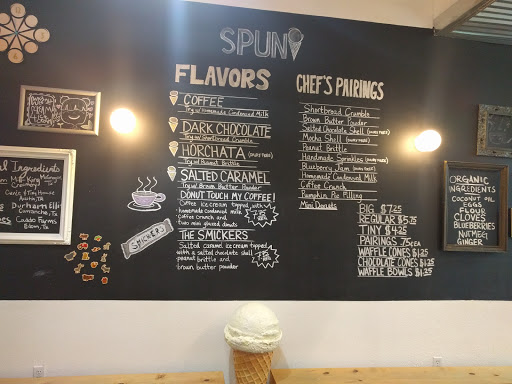 SPUN
FLAVORS
COFFEE
Try w/ Homemade Condensed Milk
DARK CHOCOLATE
Try w/ Shortbread Crumble
HORCHATA (DAIRY FREE)
Try w/ Peanut Brittle
SALTED CARAMEL
Try w/ Brown Butter Powder
DONUT TOUCH MY COFFEE!
Coffee ice cream topped with
homemade condensed milk
Coffee crunch and
Two mini glazed donuts
THE SMICKERS
Salted caramel ice cream topped
with a salted chocolate shell
peanut brittle and
brown butter powder
SMICKERS
CHEF'S PAIRINGS
Shortbread Crumble
Brown Butter Powder
Salted Chocolate Shell (DAIRY FREE)
Mocha Shell (DAIRY FREE)
Peanut Brittle
Handmade Sprinkles (DAIRY FREE)
Blueberry Jam (DAIRY FREE)
Homemade Condensed Milk
Coffee Crunch
Pumpkin Pie Filling
Mini Donuts
BIG $7.25
REGULAR $5.75
TINY $4.25
PAIRINGS 75¢ EA
WAFFLE CONES $1.25
CHOCOLATE CONES $1.25
WAFFLE BOWLS $1.25
Ingredients
Mill-King
Creamery
McGregor, TX
Austin, TX
Durham
Comanche, TX
Farms
ORGANIC
INGREDIENTS
COCONUT OIL
EGGS
FLOUR
CLOVES
BLUEBERRIES
NUTMEG
GINGER